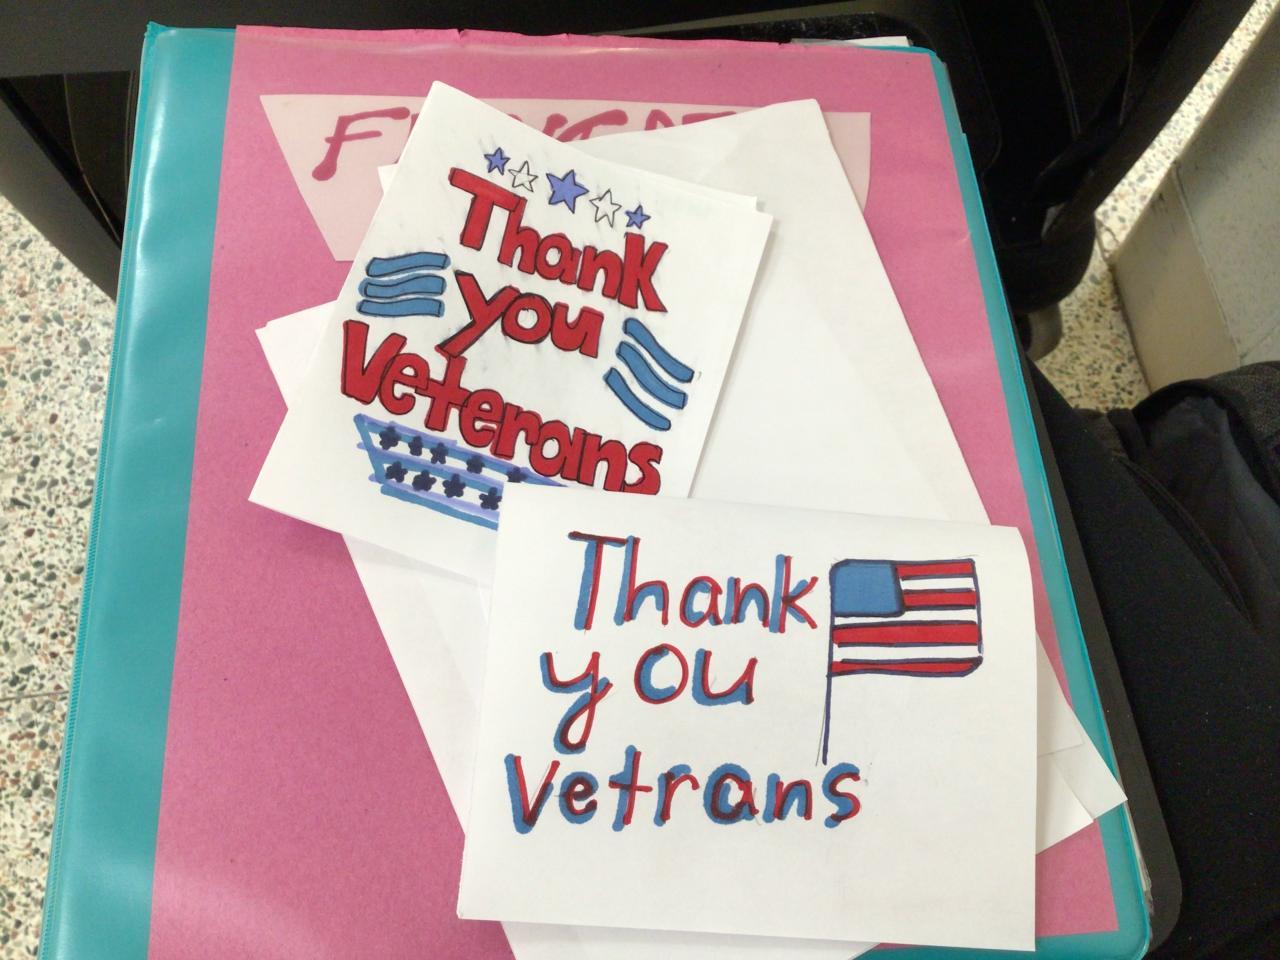 Thank
you
Veterans
Thank
you
Vetrans